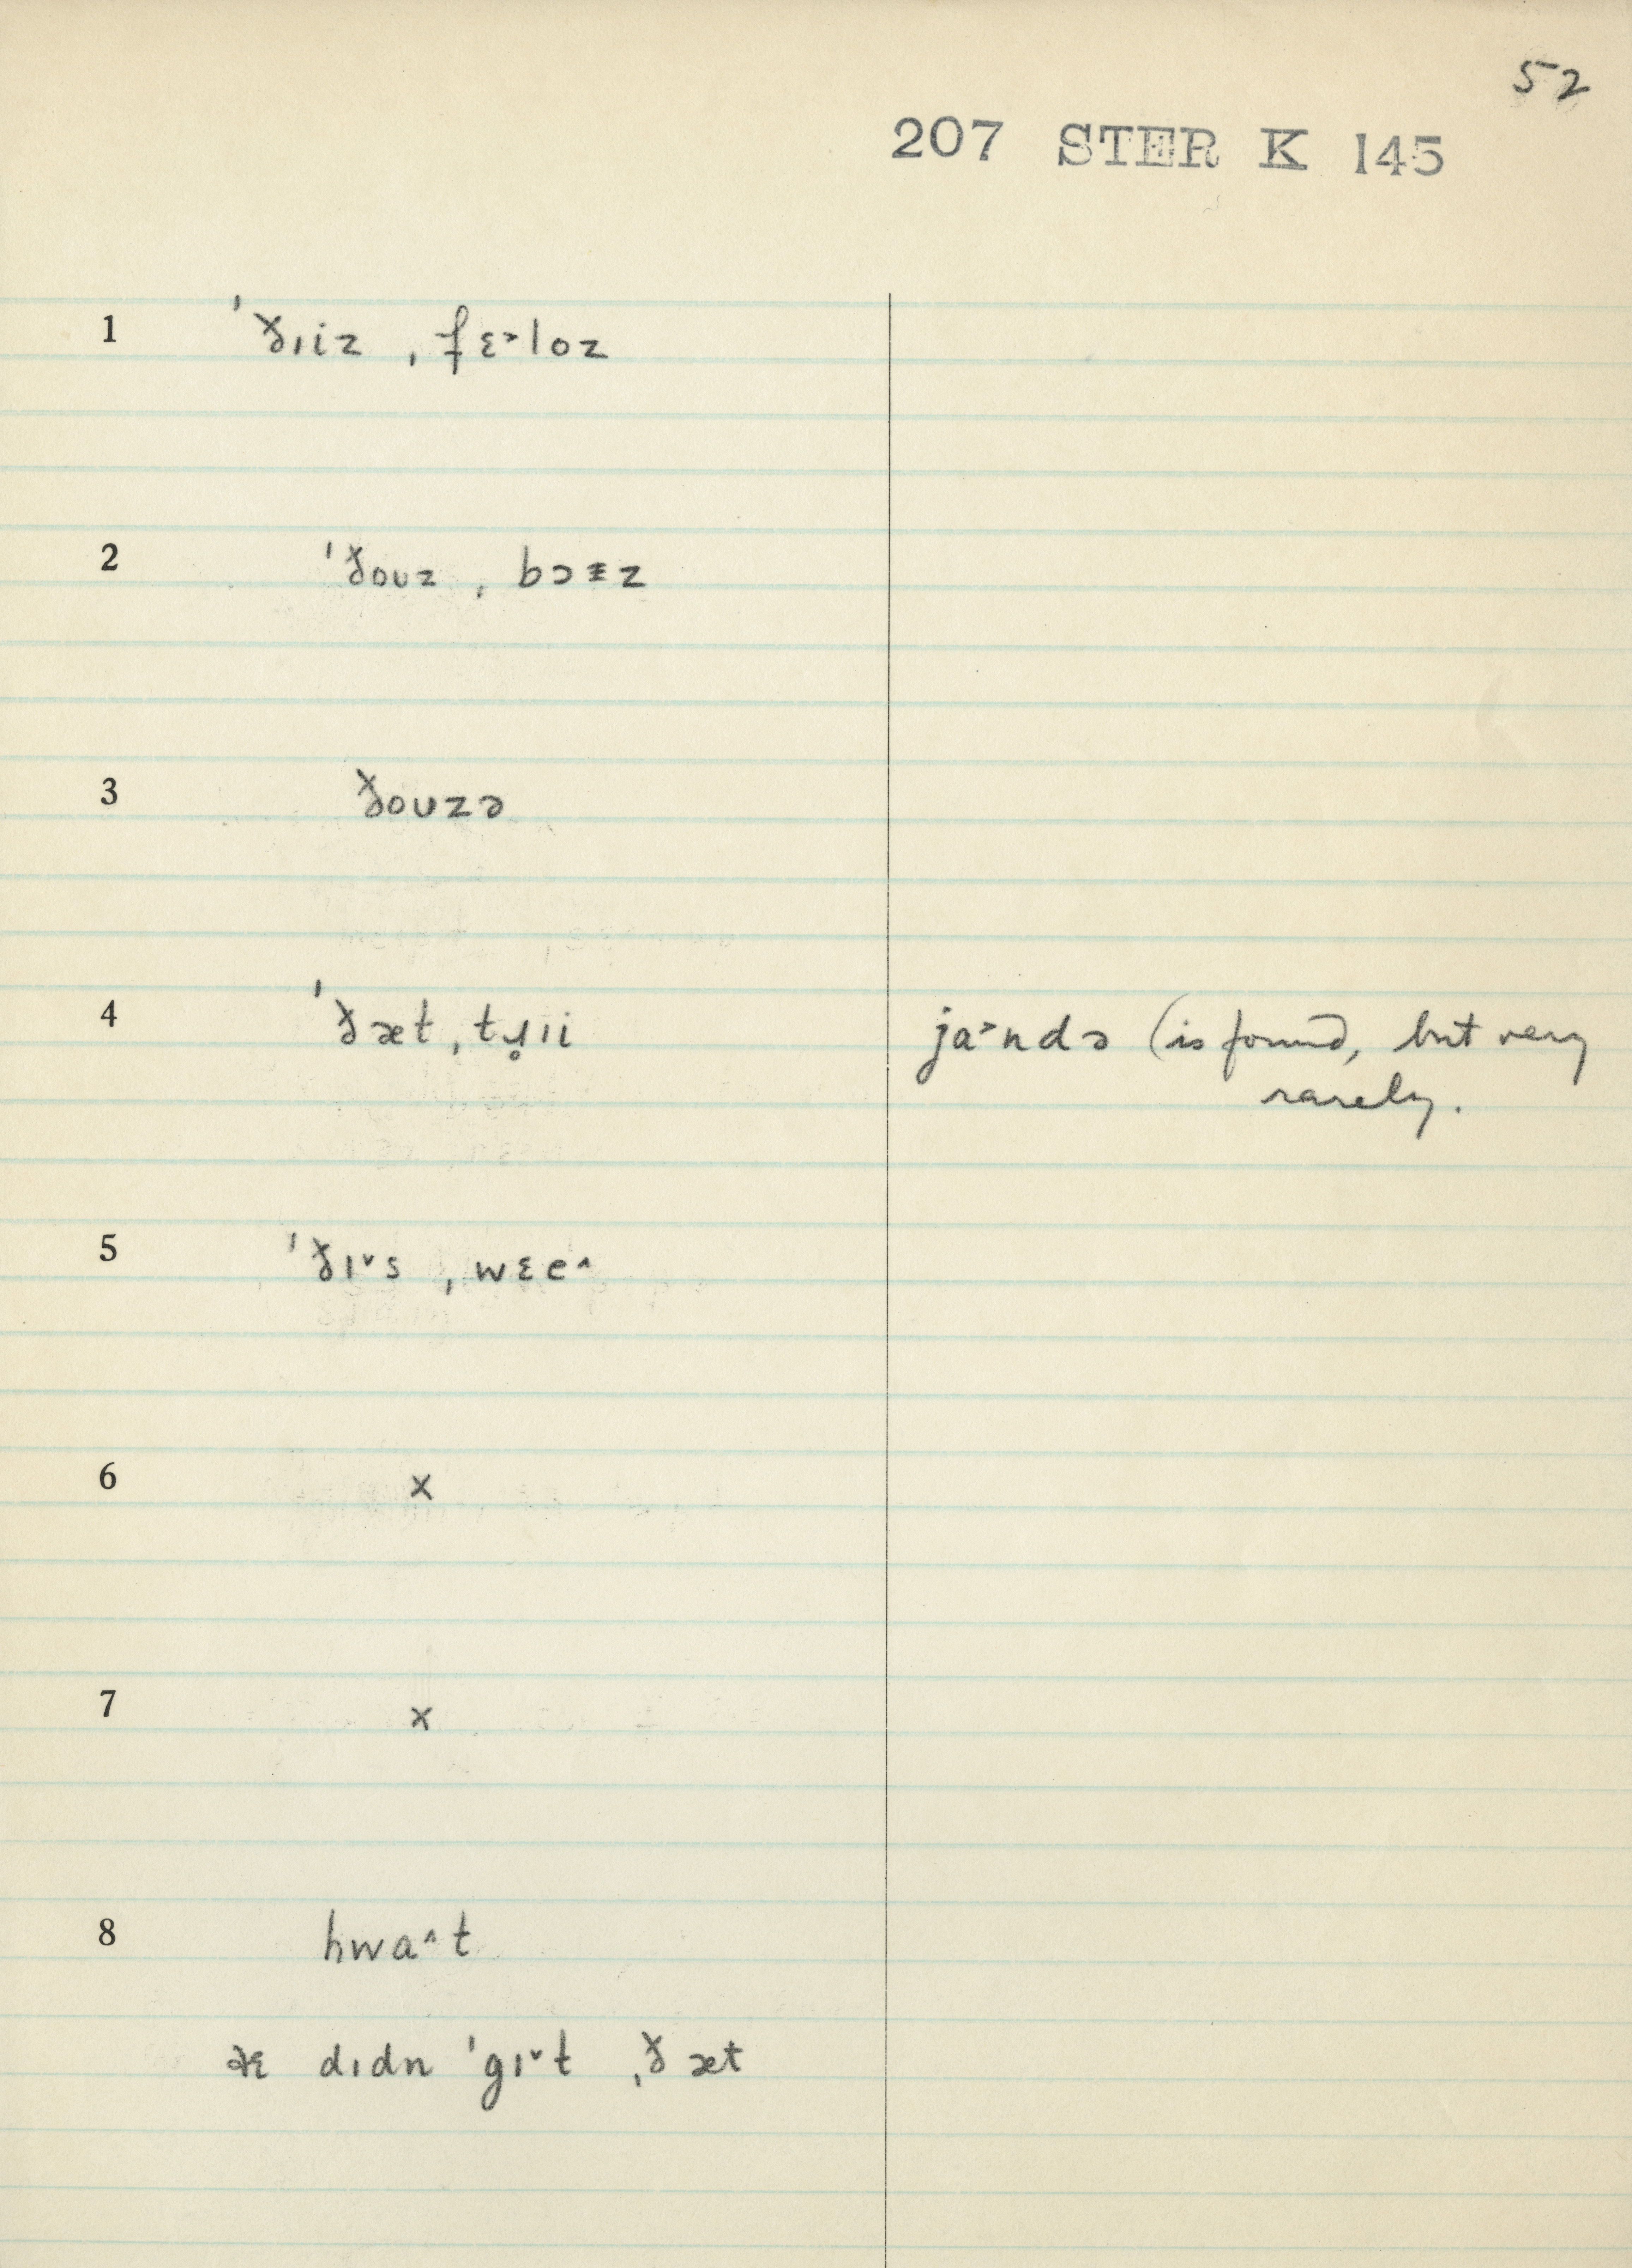 52
207 STER K 145
1 ˈðɪiz ˌfɛ˃loz
2 ˈðoʊz ˌbɔɪz
3 ðoʊzə
4 ˈðæt ˌtɹ̥ɪi ja˃ndə (is found, but very
rarely.
5 ˈðɪ˅s ˌwɛe˄
6 x
7 x
8 hwa˄t
dɪdn ˈgɪ˅t ˌðæt